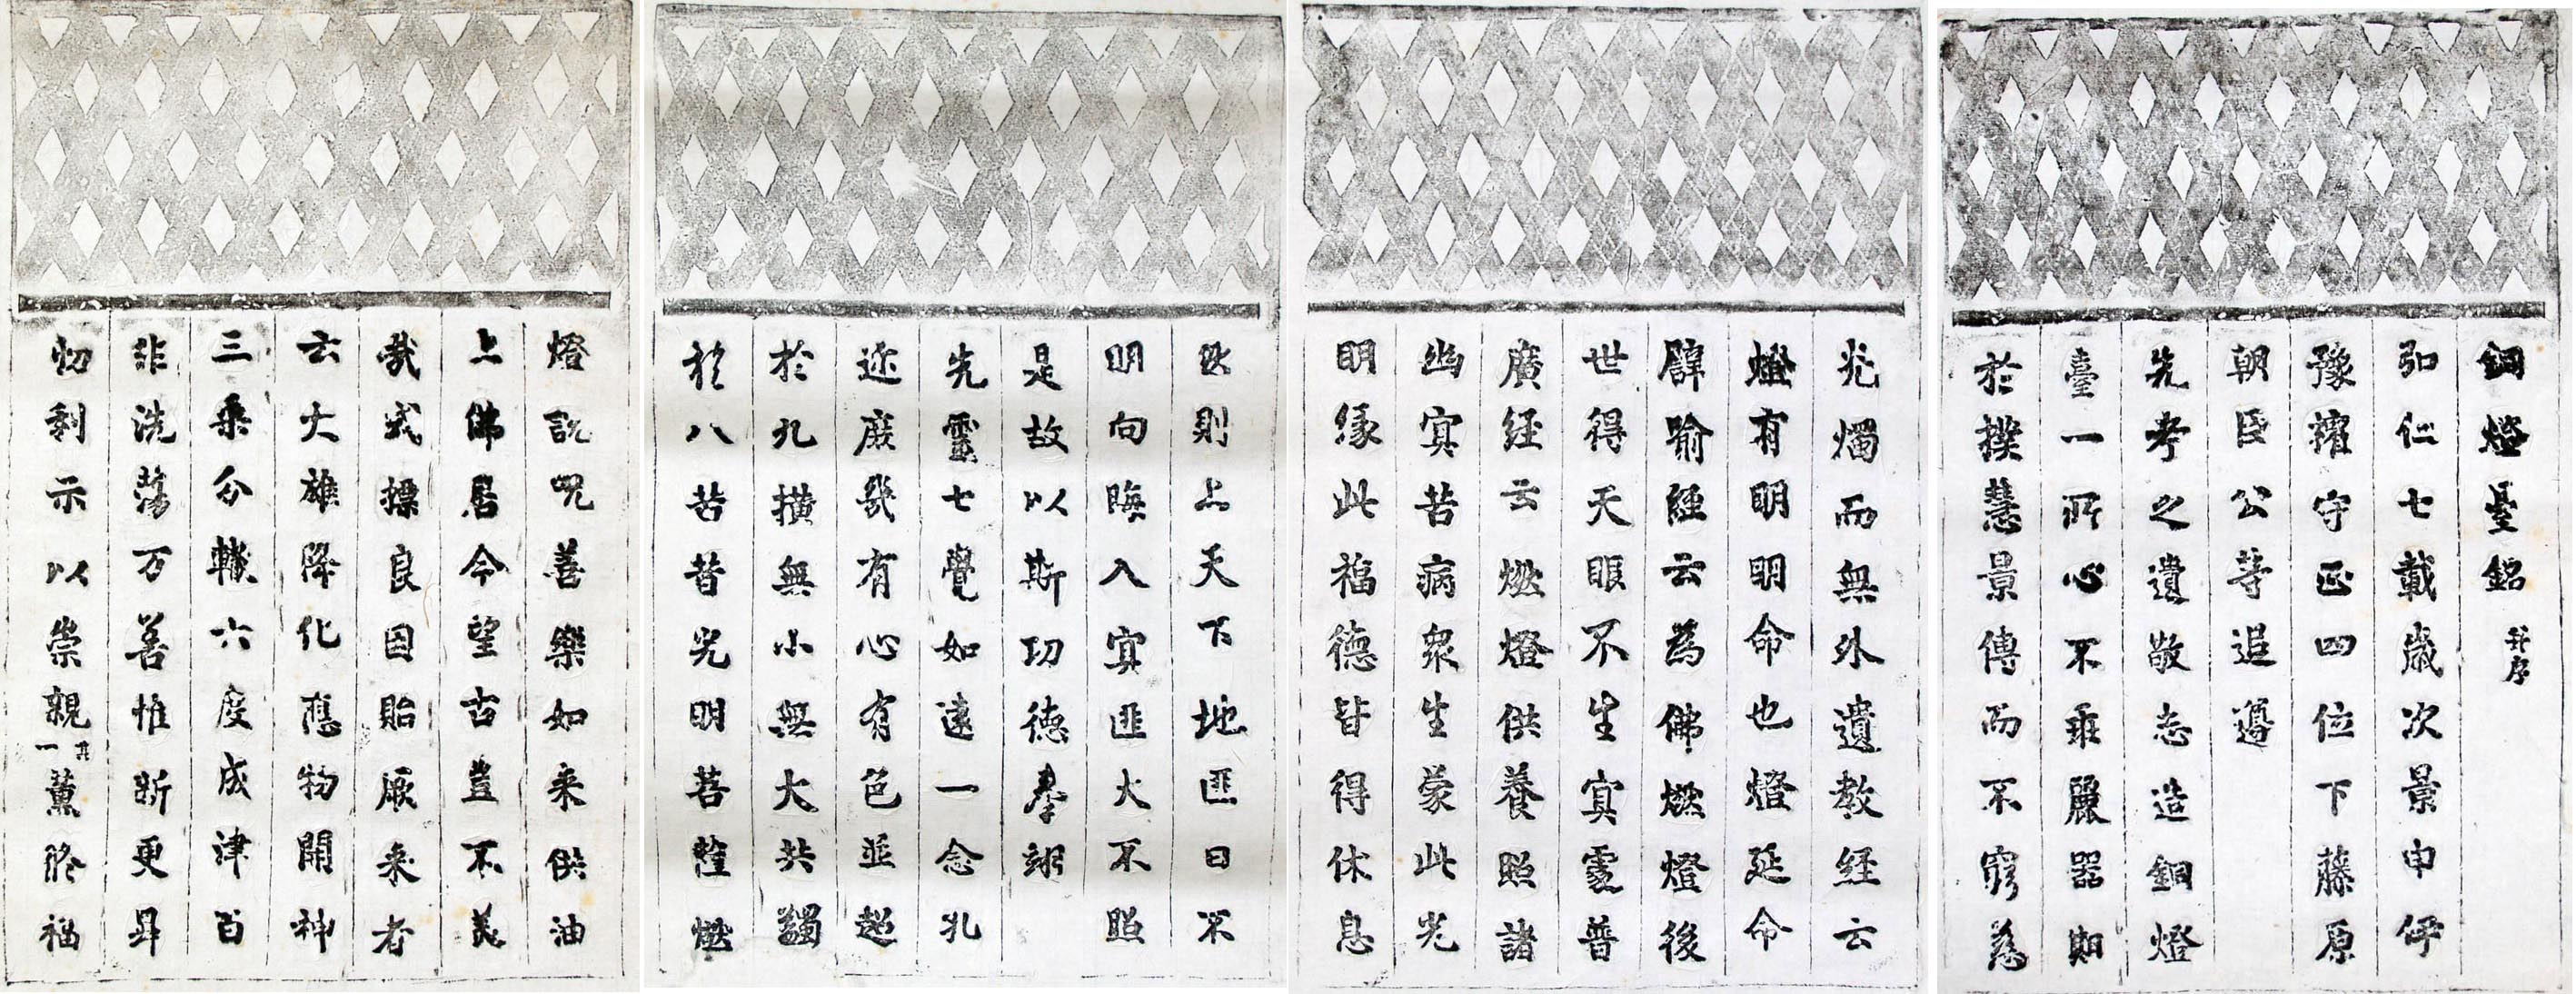 銅燈臺銘并序
弘仁七載歳次景申伊
豫權守正四位下藤原
朝臣公等追遵
先考之遺敬志造銅燈
臺一所心不乖麗器期
於撲慧景傳而不窮慈
光燭而無外遺教経云
燈有明明命也燈延命
譬喻經云為佛燃燈後
世得天眼不生冥處普
廣経云燃燈供養照諸
幽冥苦病衆生蒙此光
明縁此福德皆得休息
然則上天下地匪日不
明向晦入冥匪火不照
是故以斯功德奉翊
先靈七覺如遠一念孔
迩庶幾有心有色並超
於九横無小無大共蠲
於八苦昔光明菩薩燃
燈説呪善樂如来供油
上佛居今望古豈不美
哉式標良因貽厥来者
云大雄降化應物開神
三乗分轍六度成津百
非洗蕩万善惟新更昇
忉利示以崇親其一薫於福